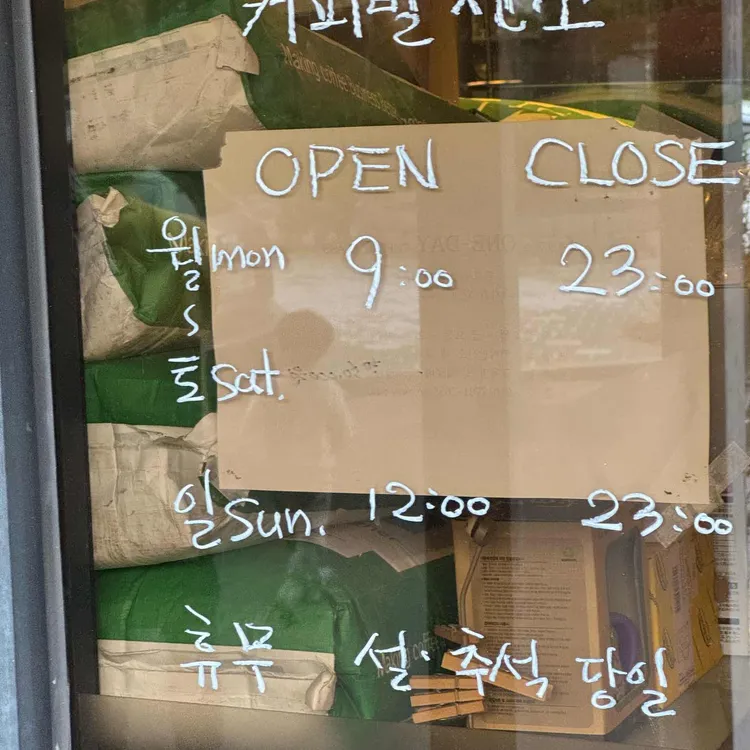 OPEN CLOSE
월 mon 9:00 23:00
~
토 Sat.
일 Sun. 12:00 23:00
휴무 설·추석 당일